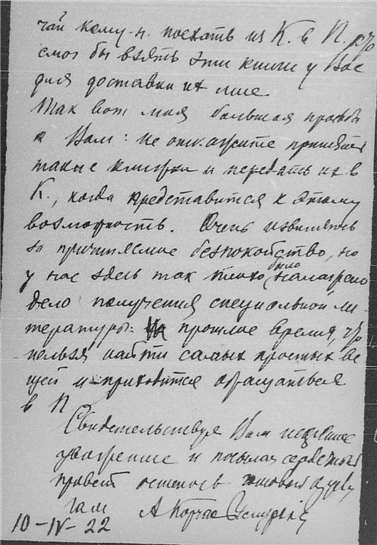 чай кому-н. поехать из К. в П. что
смог бы взять эти книги у Вас
для доставки их мне
Так вот моя большая просьба
к Вам: не откажите принять
такие книжки и передать их в
К., когда представится к этому
возможность. Очень извиняюсь
за причиняемое беспокойство, но
у нас здесь так плохо было налажено
дело получения специальной ли
тературы в прошлое время, что
нельзя найти самых простых ве
щей и приходится обращаться
в П.
Свидетельствуя Вам искреннее
уважение и посылая сердечный
привет остаюсь готовый к услу
гам А Корчак
10-IV-22